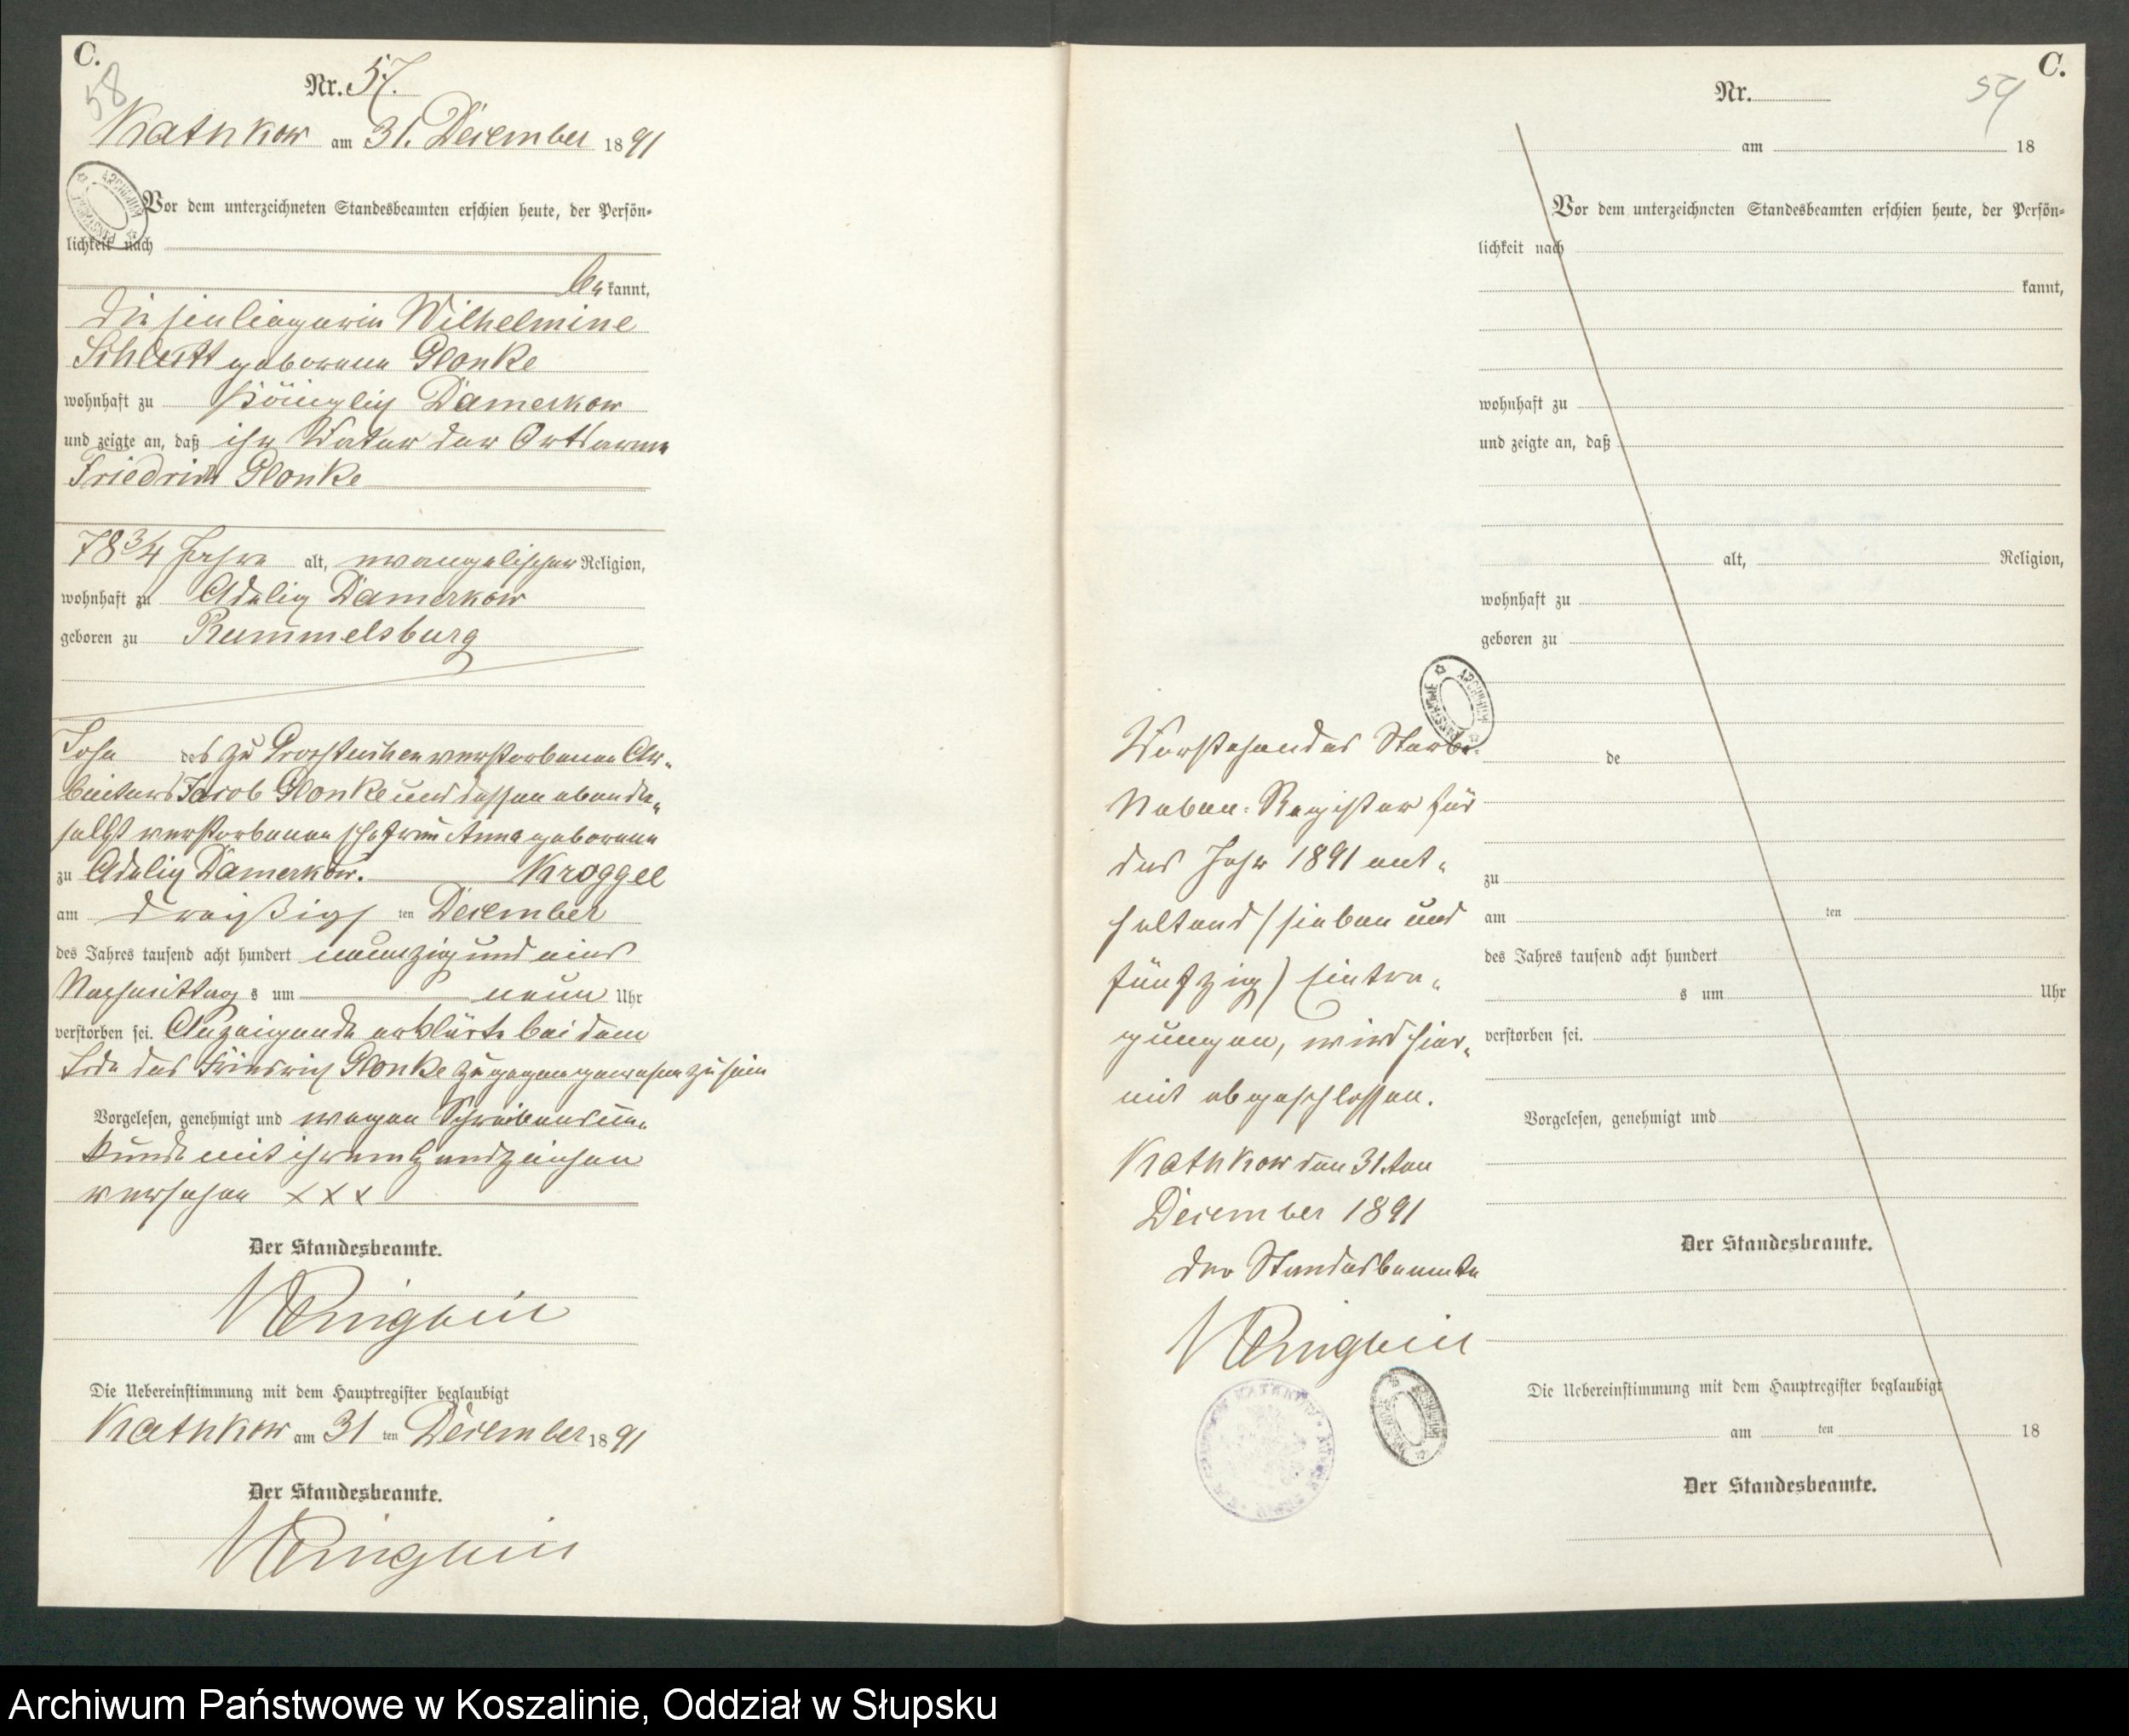 C.
58
Nr. 57.
Kathkow am 31. December 1891
Vor dem unterzeichneten Standesbeamten erschien heute, der Persön=
lichkeit nach
be kannt,
die Einliegerin Wilhelmine
geborene Glonke
wohnhaft zu Königlich Damerkow
und zeigte an, daß ihr Vater der Ortsarme
Friedrich Glonke
78 3/4 Jahre alt, evangelischer Religion,
wohnhaft zu Adelig Damerkow
geboren zu Rummelsburg
Sohn des zu verstorbenen Ar=
beiters Jacob Glonke und dessen ebenda=
selbst verstorbenen Ehefrau Anna geborene
zu Adelig Damerkow. Kroggel
am dreißig ten December
des Jahres tausend acht hundert neunzig und eins
Nachmittag s um neun Uhr
verstorben sei. Anzeigende erklärte bei dem
Tode des Friedrich Glonke zugegen gewesen zu sein
Vorgelesen, genehmigt und wegen Schreibensun=
kunde mit ihrem Handzeichen
versehen XXX
Der Standesbeamte.
Die Uebereinstimmung mit dem Hauptregister beglaubigt
Kathkow am 31 ten December 1891
Der Standesbeamte.
C.
59
Nr.
am 18
Vor dem unterzeichneten Standesbeamten erschien heute, der Persön=
lichkeit nach
kannt,
wohnhaft zu
und zeigte an, daß
alt, Religion,
wohnhaft zu
geboren zu
de
zu
am ten
des Jahres tausend acht hundert
s um Uhr
verstorben sei.
Vorgelesen, genehmigt und
Der Standesbeamte.
Die Uebereinstimmung mit dem Hauptregister beglaubigt
am ten 18
Der Standesbeamte.
Vorstehendes Sterbe=
Neben=Register für
das Jahr 1891 ent=
haltend (sieben und
fünfzig) Eintra=
gungen, wird hier=
mit abgeschlossen.
Kathkow den 31.ten
December 1891
der Standesbeamte
Archiwum Państwowe w Koszalinie, Oddział w Słupsku